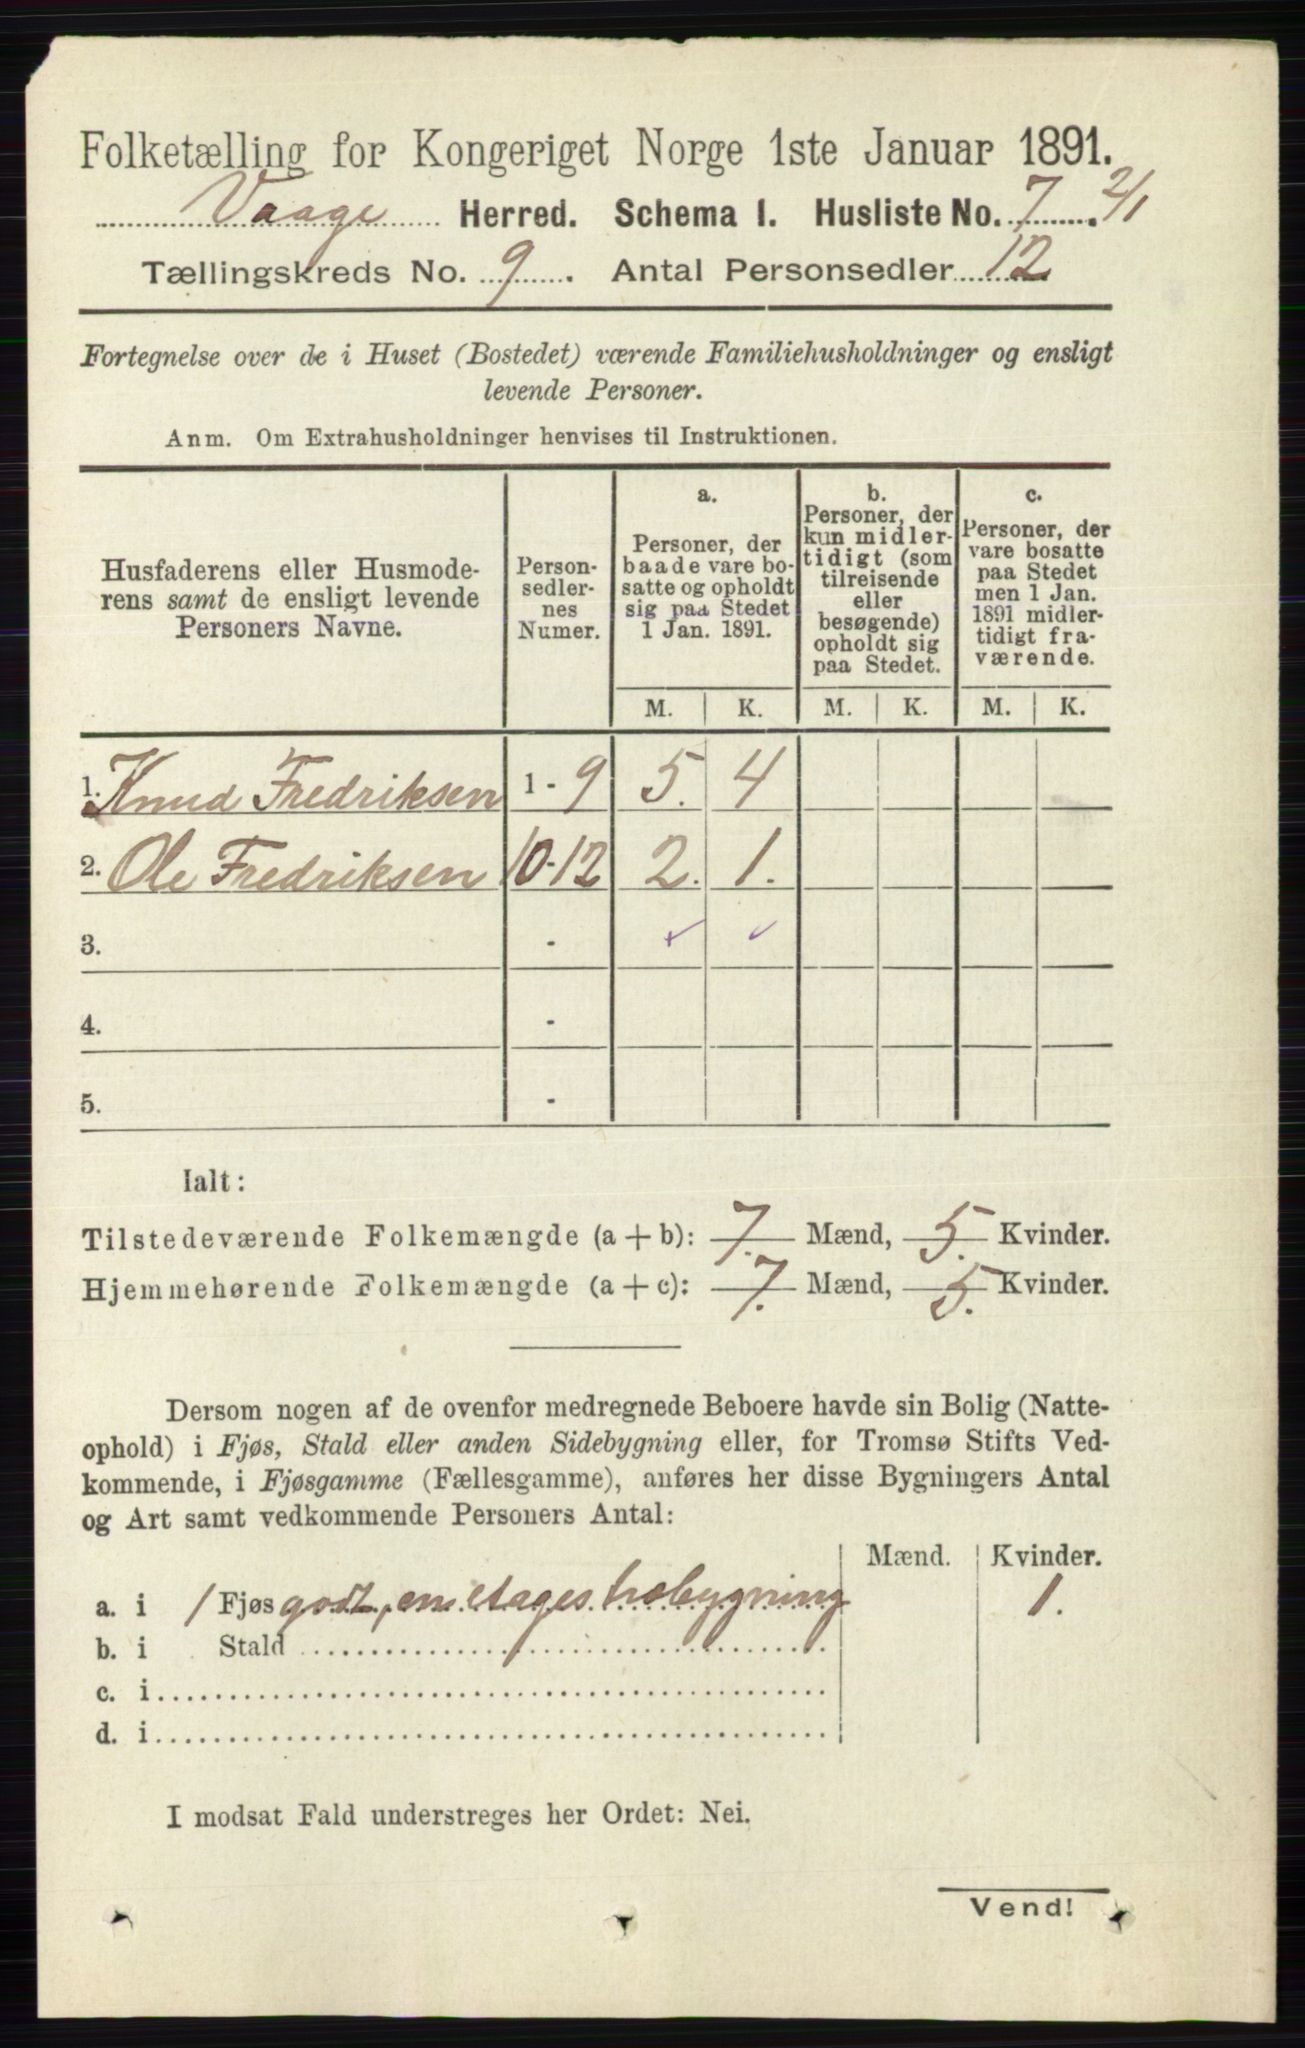 Folketælling for Kongeriget Norge 1ste Januar 1891.
Vaage Herred. Schema I. Husliste No. 7. 2/1
Tællingskreds No. 9. Antal Personsedler 12
Fortegnelse over de i Huset (Bostedet) værende Familiehusholdninger og ensligt
levende Personer.
Anm. Om Extrahusholdninger henvises til Instruktionen.
Husfaderens eller Husmode-
rens samt de ensligt levende
Personers Navne.
Person-
sedler-
nes
Numer.
a.
Personer, der
baade vare bo-
satte og opholdt
sig paa Stedet
1 Jan. 1891.
b.
Personer, der
kun midler-
tidigt (som
tilreisende
eller
besøgende)
opholdt sig
paa Stedet.
c.
Personer, der
vare bosatte
paa Stedet
men 1 Jan.
1891 midler-
tidigt fra-
værende.
M. K. M. K. M. K.
1. Knud Fredriksen 1 - 9 5. 4
2. Ole Fredriksen 10-12 2. 1.
3. -
4. -
5. -
Ialt:
Tilstedeværende Folkemængde (a + b): 7. Mænd, 5. Kvinder.
Hjemmehørende Folkemængde (a + c): 7. Mænd, 5. Kvinder.
Dersom nogen af de ovenfor medregnede Beboere havde sin Bolig (Natte-
ophold) i Fjøs, Stald eller anden Sidebygning eller, for Tromsø Stifts Ved-
kommende, i Fjøsgamme (Fællesgamme), anføres her disse Bygningers Antal
og Art samt vedkommende Personers Antal:
Mænd. Kvinder.
a. i 1 Fjøs godt, en etages træbygning 1.
b. i Stald
c. i
d. i
I modsat Fald understreges her Ordet: Nei.
Vend!